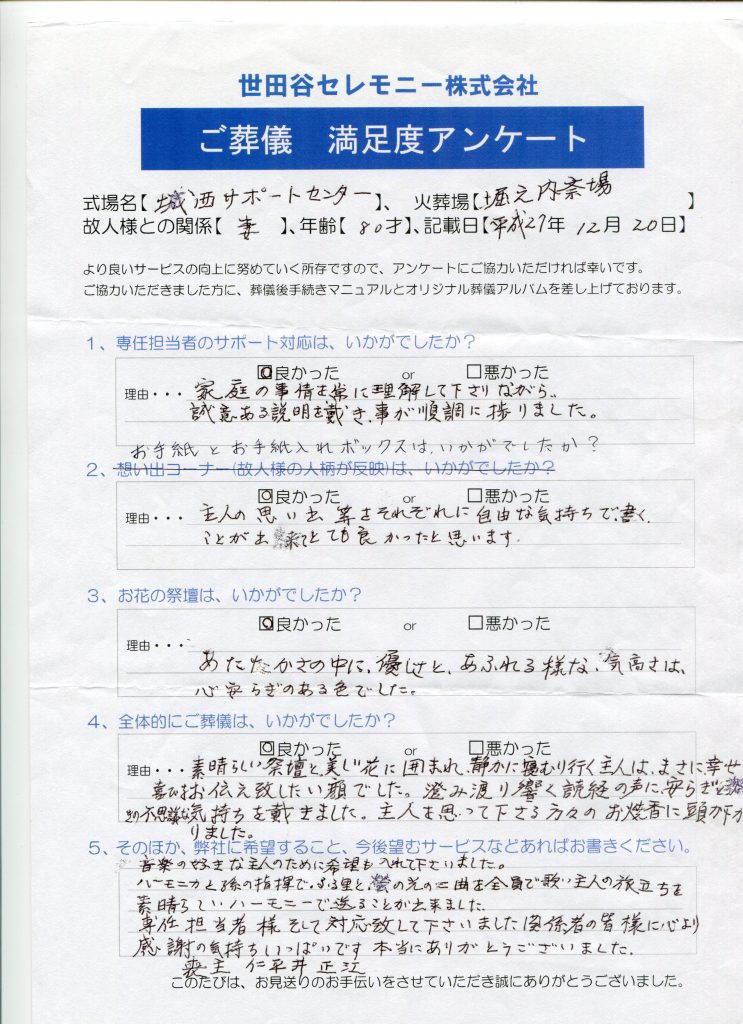 世田谷セレモニー株式会社
ご葬儀 満足度アンケート
式場名【城西サポートセンター】、火葬場【堀之内斎場】
故人様との関係【妻】、年齢【80才】、記載日【平成27年12月20日】
より良いサービスの向上に努めていく所存ですので、アンケートにご協力いただければ幸いです。
ご協力いただきました方に、葬儀後手続きマニュアルとオリジナル葬儀アルバムを差し上げております。
1、専任担当者のサポート対応は、いかがでしたか?
良かった or □悪かった
理由・・・家庭の事情を常に理解して下さりながら、
誠意ある説明を戴き、事が順調に捗りました。
お手紙とお手紙入れボックスは、いかがでしたか?
2、想い出コーナー(故人様の人柄が反映)は、いかがでしたか?
良かった or □悪かった
理由・・・主人の思い出等をそれぞれに自由な気持ちで書く
ことが出来てとても良かったと思います.
3、お花の祭壇は、いかがでしたか?
良かった or □悪かった
理由・・・
あたたかさの中に、優しさと、あふれる様な、気高さは、
心安らぎのある色でした。
4、全体的にご葬儀は、いかがでしたか?
良かった or □悪かった
理由・・・素晴らしい祭壇と、美しい花に囲まれ、静かに寝むり行く主人は、まさに幸せ
お伝え致したい顔でした。澄み渡り響く読経の声に、安らぎと
不思議な気持ちを戴きました。主人を思って下さる方々のお焼香に頭が下が
りました。
5、そのほか、弊社に希望すること、今後望むサービスなどあればお書きください。
音楽の好きな主人のために希望も入れて下さいました。
ハーモニカと孫の指揮で、ふる里と、螢の光の二曲を全員で歌い主人の旅立ちを
素晴らしいハーモニーで送ることが出来ました.
専任担当者様そして対応致して下さいました関係者の皆様に心より
感謝の気持ちいっぱいです 本当にありがとうございました.
喪主 仁平井 正江
このたびは、お見送りのお手伝いをさせていただき誠にありがとうございました。